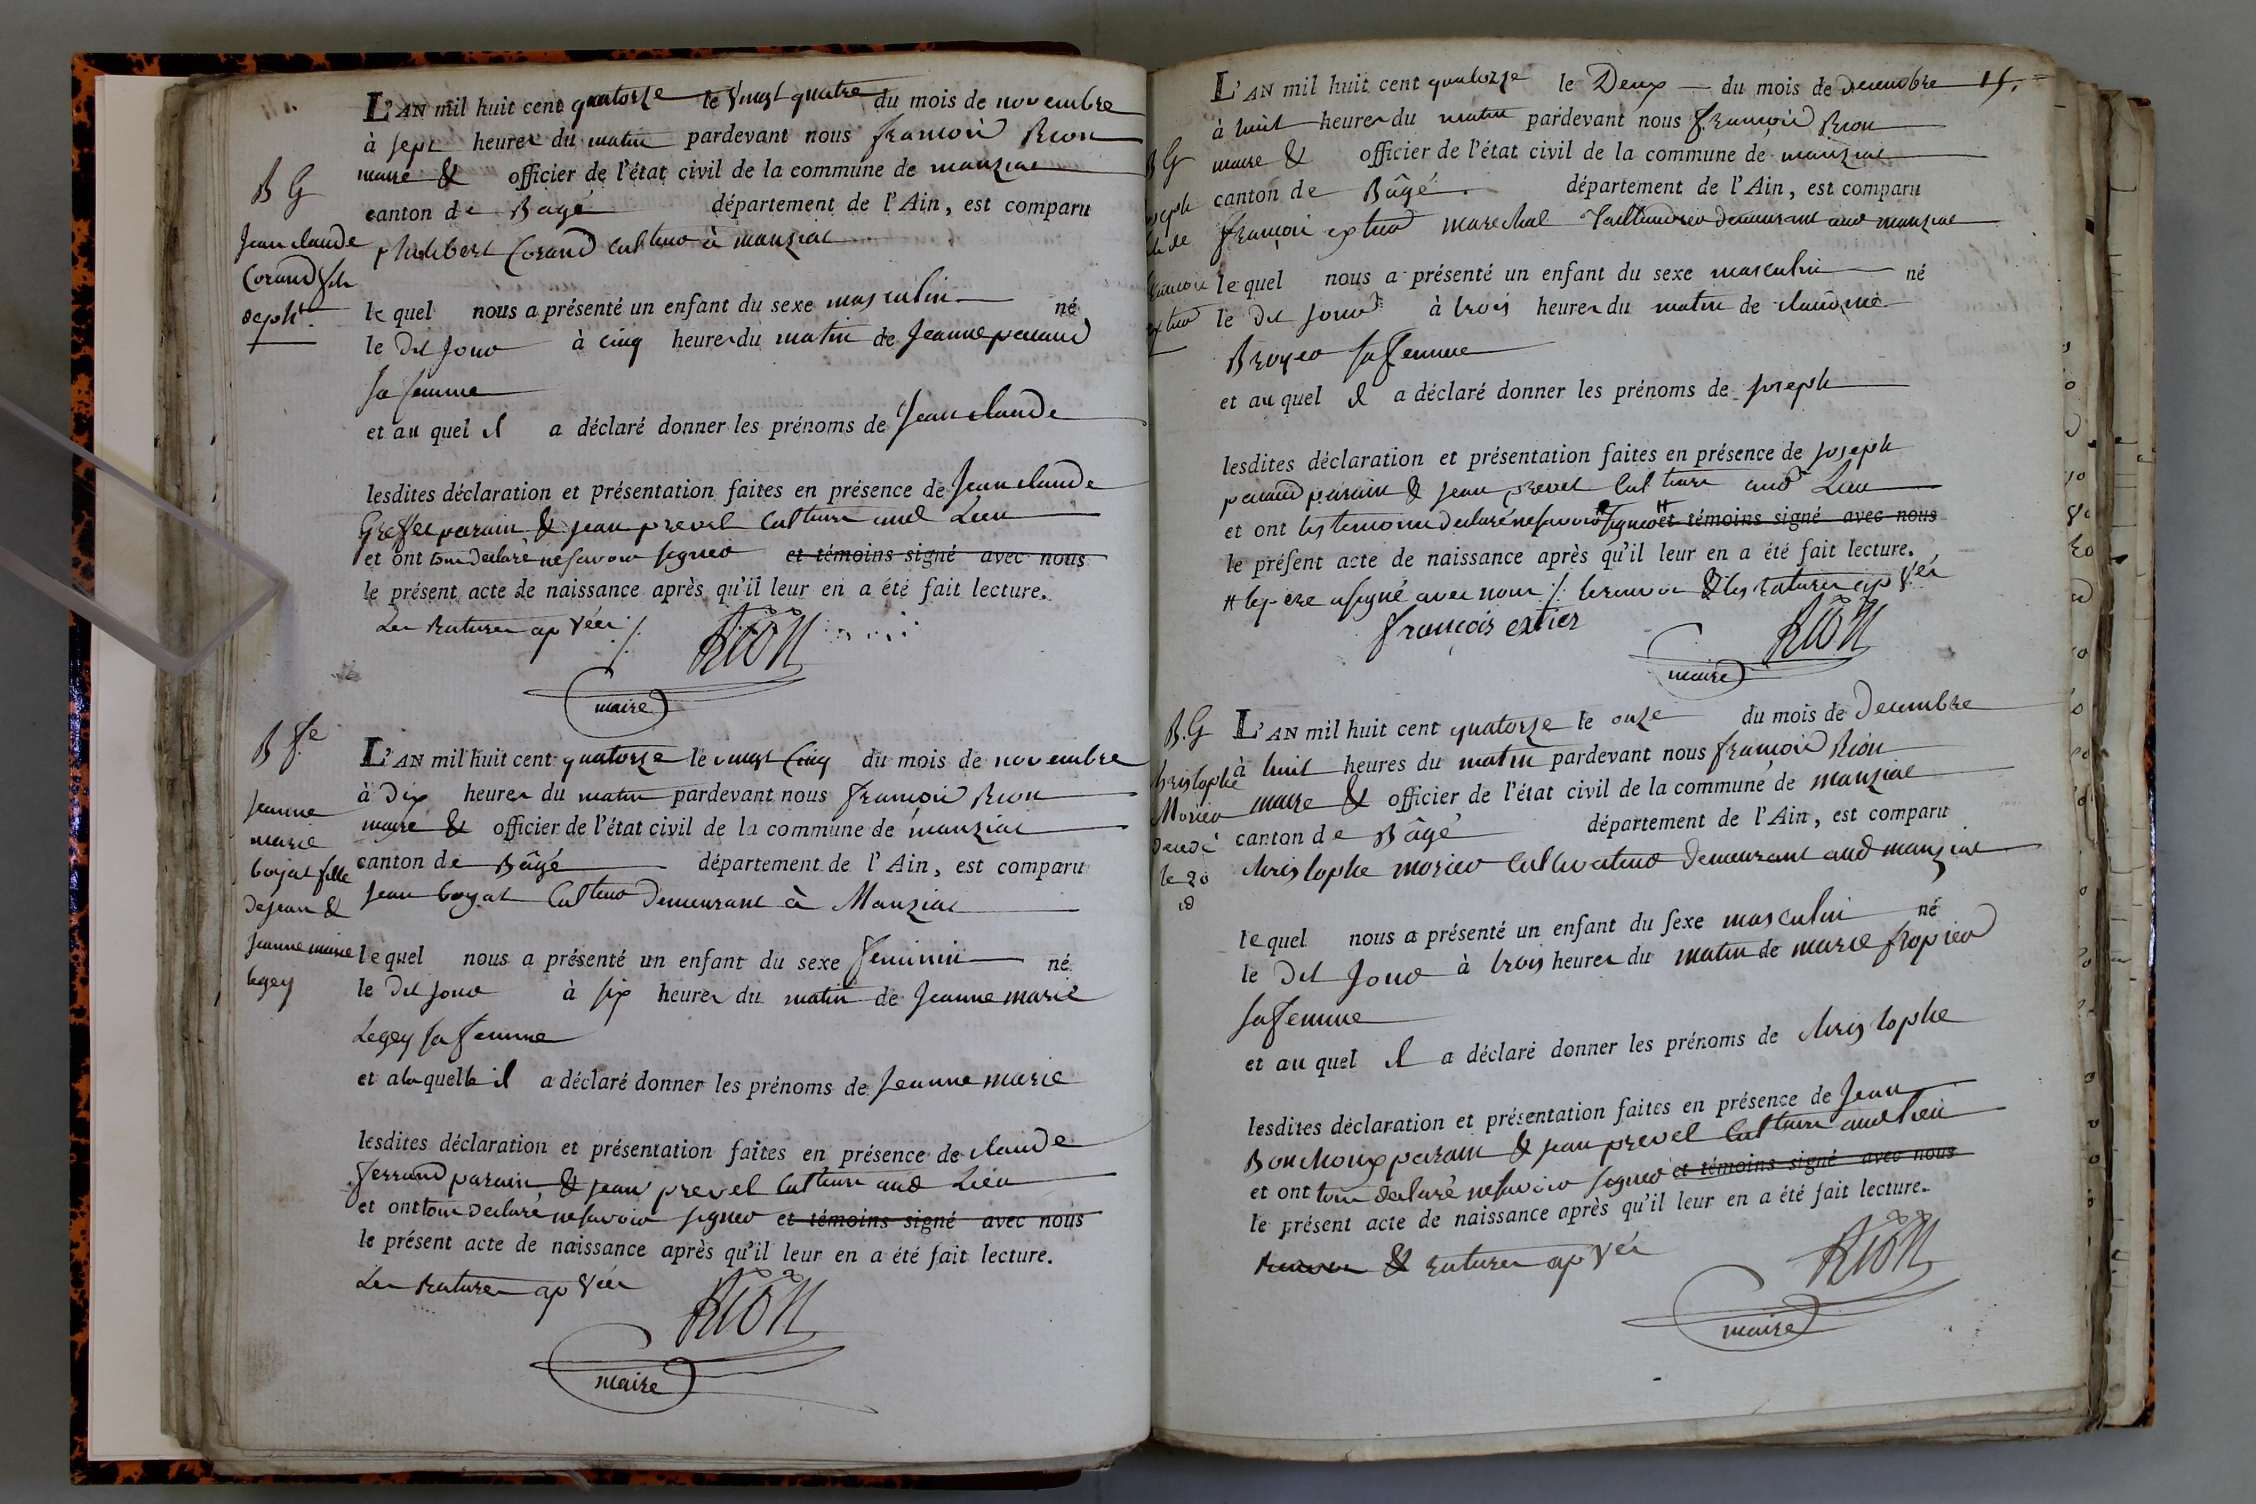 L'AN mil huit cent quatorze le vingt quatre du mois de novembre
à sept heures du matin pardevant nous françois Rion
maire & officier de l'état civil de la commune de manziat
canton de Bagé département de l'Ain, est comparu
philibert Corand cultiv à manziat
B G
Jean claude
Corand fils
le quel nous a présenté un enfant du sexe masculin né
le dit jour à cinq heures du matin de Jeanne
sa femme
et au quel il a déclaré donner les prénoms de Jean claude
lesdites déclaration et présentation faites en présence de Jean claude
Greffet parain & jean prevel cultiv aud Lieu
et ont tous declaré ne savoir signer et témoins signé avec nous
le présent acte de naissance après qu'il leur en a été fait lecture.
Les ratures ap vées
Rion
maire
B fe
Jeanne
marie
boyat fille
de jean &
jeanne marie
legey
L'AN mil huit cent quatorze le vingt cinq du mois de novembre
à dix heures du matin pardevant nous françois Rion
maire & officier de l'état civil de la commune de manziat
canton de Bâgé département de l'Ain, est comparu
jean boyat cultiv demeurant à Manziat
le quel nous a présenté un enfant du sexe feminin né
le dit jour à six heures du matin de Jeanne marie
Legey sa femme
et a laquelle il a déclaré donner les prénoms de Jeanne marie
lesdites déclaration et présentation faites en présence de claude
ferrand parain & jean prevel cultiv aud Lieu
et ont tous declaré ne savoir signer et témoins signé avec nous
le présent acte de naissance après qu'il leur en a été fait lecture.
Les ratures ap vées
Rion
maire
15.
L'AN mil huit cent quatorze le Deux du mois de decembre
à huit heures du matin pardevant nous françois Rion
maire & officier de l'état civil de la commune de manziat
canton de Bâgé département de l'Ain, est comparu
françois extier marechal taillandier demeurant aud manziat
B G
joseph
fils de
francois
extier
le quel nous a présenté un enfant du sexe masculin né
le dit jour à trois heures du matin de claudine
Broyer sa femme
et au quel il a déclaré donner les prénoms de joseph
lesdites déclaration et présentation faites en présence de joseph
parain & jean prevel cultiv aud Lieu
et ont les temoins declaré ne savoir signer # et témoins signé avec nous
le présent acte de naissance après qu'il leur en a été fait lecture.
# le pere a signé avec nous /. le renvoi & les ratures ap vés
françois extier
Rion
maire
B.G
christophe
Morier
decedé
le 20
L'AN mil huit cent quatorze le onze du mois de Decembre
à huit heures du matin pardevant nous françois Rion
maire & officier de l'état civil de la commune de manziat
canton de Bâgé département de l'Ain, est comparu
christophe morier cultivateur demeurant aud manziat
le quel nous a présenté un enfant du sexe masculin né
le dit jour à trois heures du matin de marie fropier
sa femme
et au quel il a déclaré donner les prénoms de christophe
lesdites déclaration et présentation faites en présence de Jean
Bouchoux parain & jean prevel cultiv aud lieu
et ont tous declaré ne savoir signer et témoins signé avec nous
le présent acte de naissance après qu'il leur en a été fait lecture.
& ratures ap vés
Rion
maire